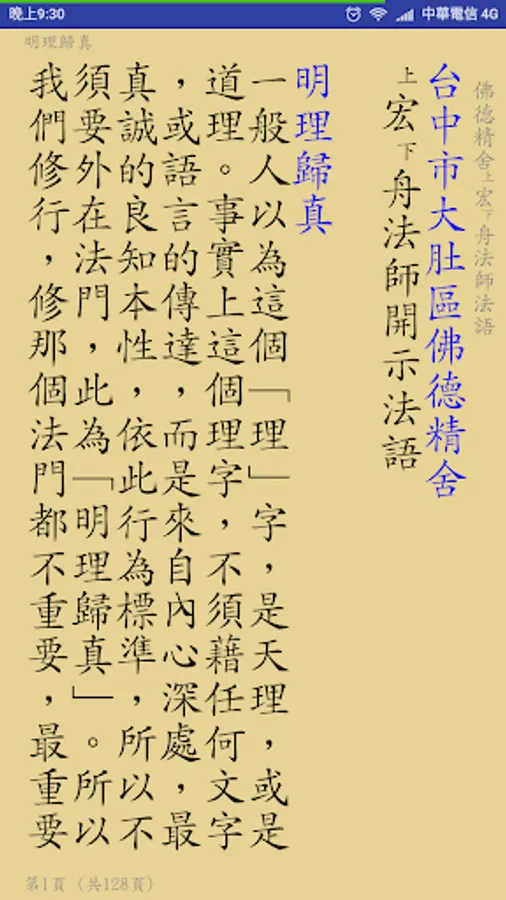 晚上9:30
中華電信 4G
明理歸真
佛德精舍上宏下舟法師法語
台中市大肚區佛德精舍
上宏下舟法師開示法語
明理歸真
一般人以為這個「理」字，是天理，或是
道理。事實上這個理字，不須藉任何文字
，或語言的傳達，而是來自內心深處，最
真誠的良知本性，依此行為標準，所以不
須要外在法門，此為「明理歸真」。所以
我們修行，修那個法門都不重要，最重要
第1頁（共128頁）